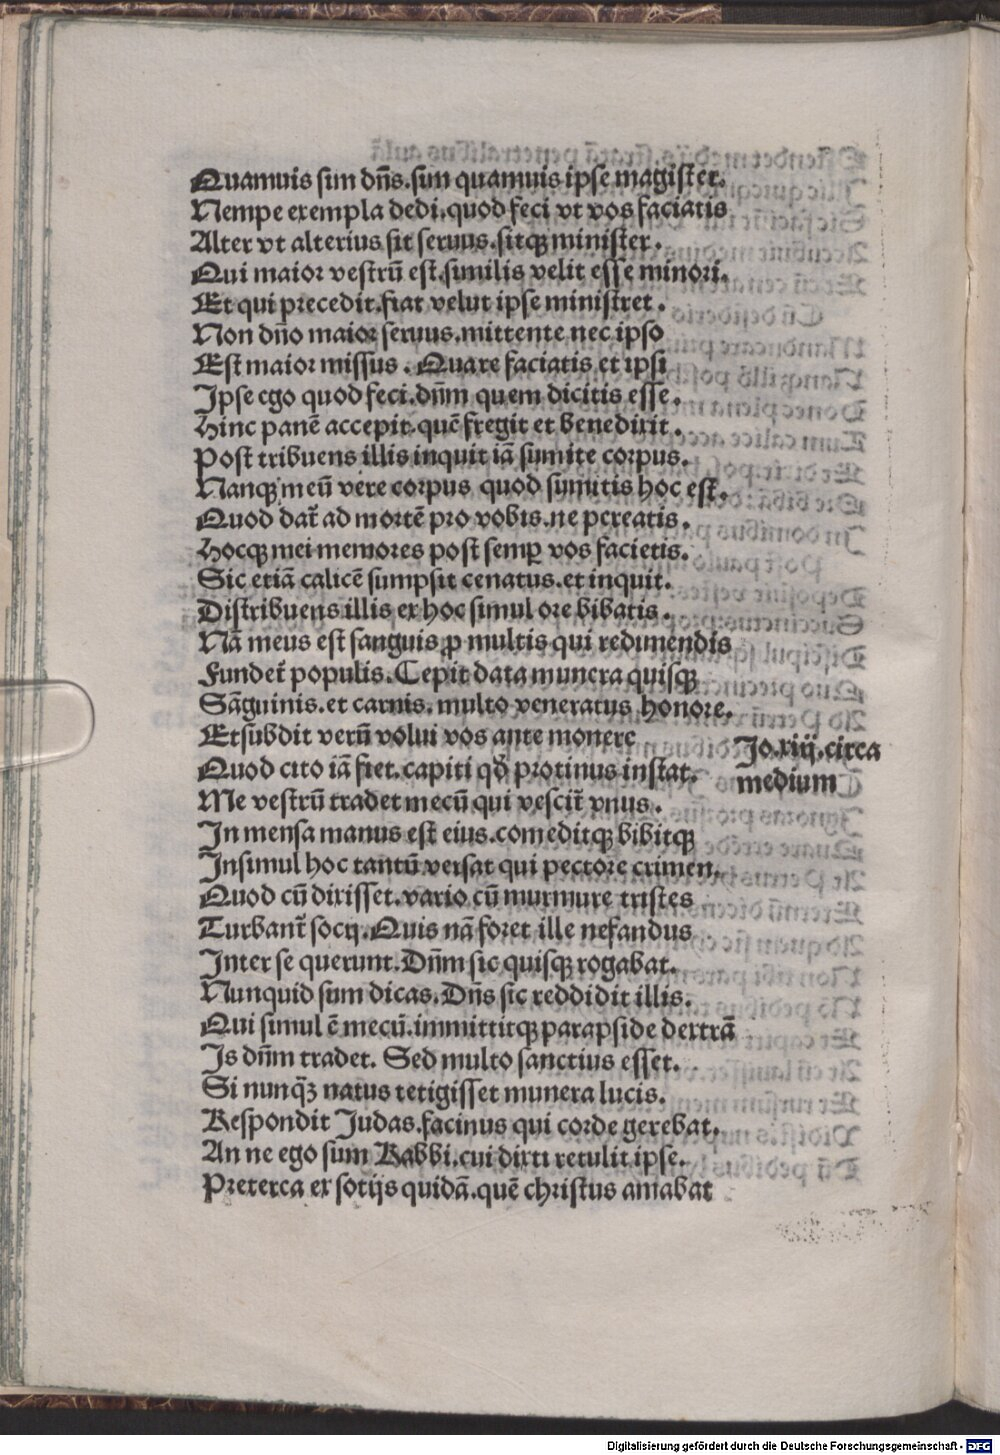 Quamuis sim dn̄s.sim quamuis ipse magister.
Nempe exempla dedi.quod feci vt vos faciatis
Alter vt alterius sit seruus.sitqꝫ minister.
Qui maior vestrū est.similis velit esse minori.
Et qui precedit.fiat velut ipse ministret.
Non dn̄o maior seruus.mittente nec ipso
Est maior missus. Quare faciatis et ipsi
Ipse ego quod feci.dn̄m quem dicitis esse.
Hinc panē accepit.quē fregit et benedixit.
Post tribuens illis inquit iā sumite corpus.
Nanqꝫ meū vere corpus quod sumitis hoc est.
Quod dat̄ ad mortē pro vobis.ne pereatis.
Hocqꝫ mei memores post semꝑ vos facietis.
Sic etiā calicē sumpsit cenatus.et inquit.
Distribuens illis ex hoc simul ore bibatis.
Nā meus est sanguis ꝓ multis qui redimendis
Fundet̄ populis.Cepit data munera quisqꝫ
Sāguinis.et carnis.multo veneratus honore.
Et subdit verū volui vos ante monere
Quod cito iā fiet.capiti qđ protinus instat.
Io.xiij.circa
medium
Me vestrū tradet mecū qui vescit̄ vnus.
In mensa manus est eius.comeditqꝫ bibitqꝫ
Insimul hoc tantū versat qui pectore crimen.
Quod cū dixisset.vario cū murmure tristes
Turbant̄ socij.Quis nā foret ille nefandus
Inter se querunt.Dn̄m sic quisqꝫ rogabat.
Nunquid sum dicas.Dn̄s sic reddidit illis.
Qui simul ē mecū.immittitqꝫ parapside dextrā
Is dn̄m tradet. Sed multo sanctius esset.
Si nunqꝫ̄ natus tetigisset munera lucis.
Respondit Judas.facinus qui corde gerebat.
An ne ego sum Rabbi.cui dixti retulit ipse.
Preterea ex sotijs quidā.quē christus amabat
Digitalisierung gefördert durch die Deutsche Forschungsgemeinschaft - DFG